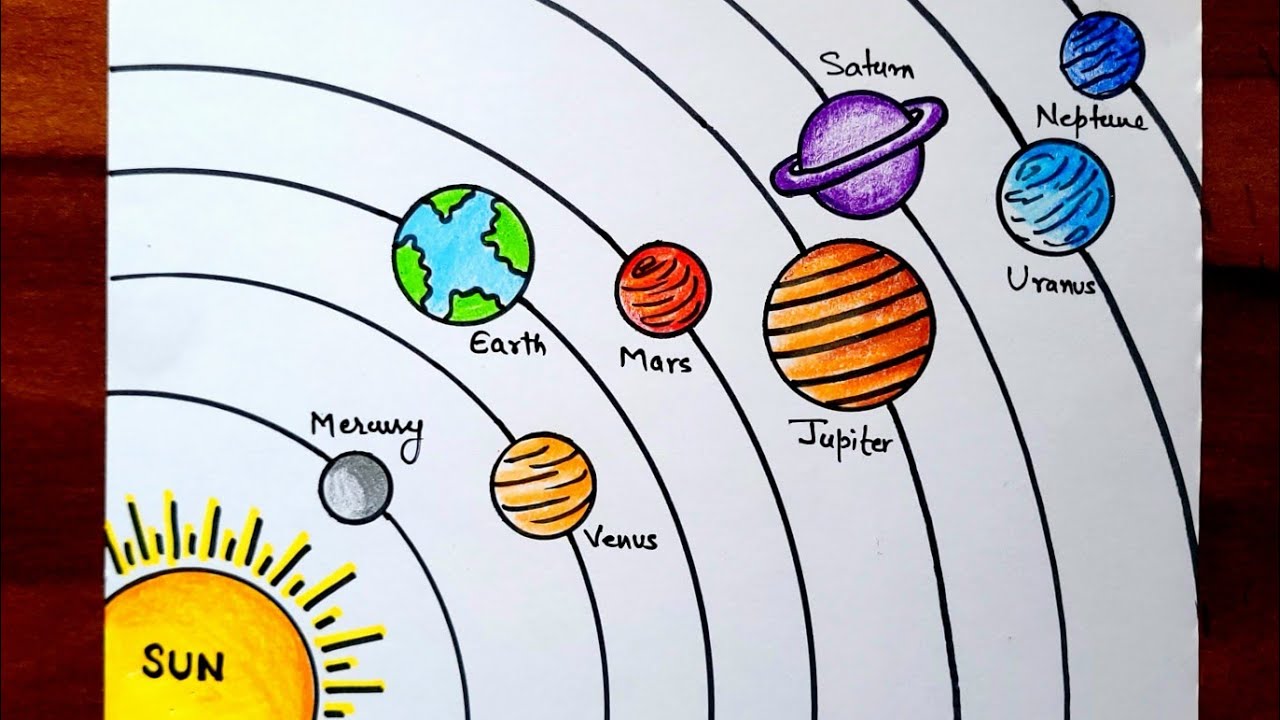 Saturn
Neptune
Uranus
Earth
Mars
Jupiter
Mercury
Venus
SUN